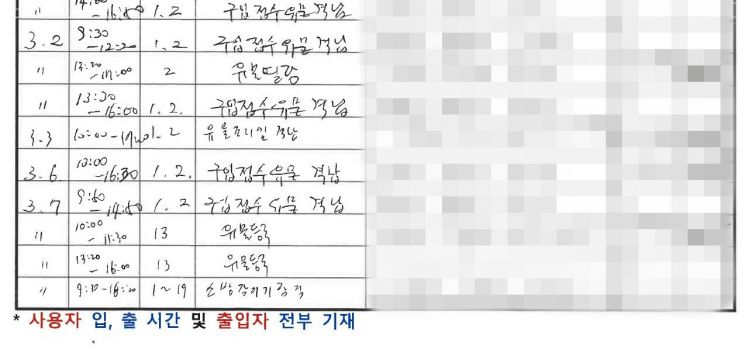 " 14:00 -16:50 1.2 구입접수유물 격납
3.2 9:30 -12:20 1.2 구입접수유물 격납
" 13:20 -17:00 2 유물
" 13:30 -16:00 1.2. 구입접수유물 격납
3.3 10:00- 1.2 유물 격납
3.6 10:00 -16:30 1.2. 구입접수유물 격납
3.7 9:50 -14:50 1.2 구입접수유물 격납
" 10:00 -11:30 13 유물등록
" 13:20 -16:00 13 유물등록
" 9:30-16:00 1~19
* 사용자 입, 출 시간 및 출입자 전부 기재